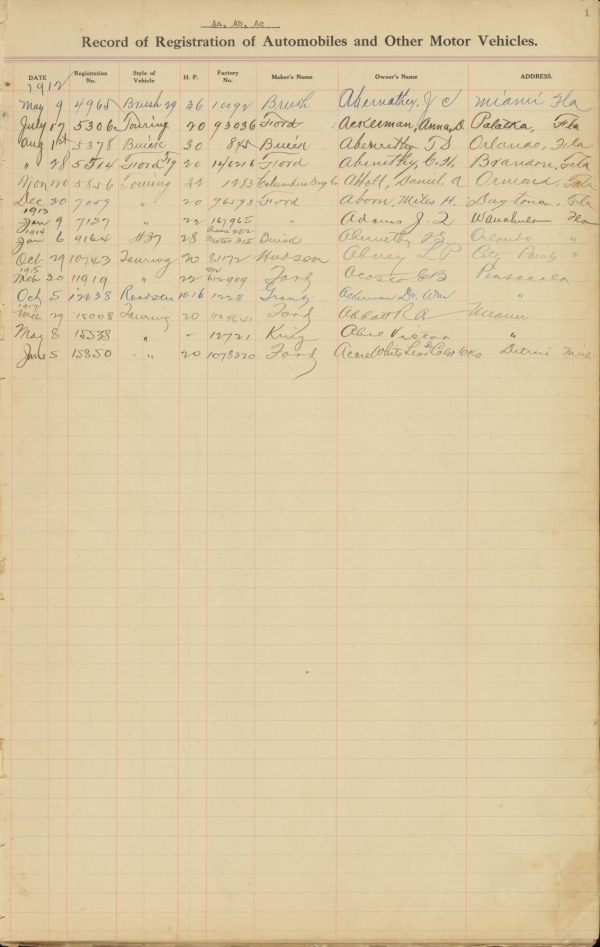 1
Aa, Ab, Ac
Record of Registration of Automobiles and Other Motor Vehicles.
DATE Registration No. Style of Vehicle H. P. Factory No. Maker's Name Owner's Name ADDRESS.
1912
May 9 4965 Brush 29 36 10092 Brush Abernathey, J C Miami Fla
July 17 5306 Touring 20 93036 Ford Ackerman, Anna, D Palatka, Fla
Aug 1st 5378 Buick 30 845 Buick Abernethy T S Orlando, Fla
" 28 5514 Ford Try 20 140216 Ford Abernethy, C. H. Brandon, Fla
Nov 20 5556 Touring 22 1283 Columbus Bug. Co AHall, Daniel. A Ormond, Fla
Dec 30 7059 " 20 76593 Ford Aborn, Miles H. Daytona, Fla
1913
Jan 9 7127 " 22 167965 " Adams J. Q Wauchula Fla
1914
Jan 6 9164 #37 28 Motor 315 Buick Abernethy T S Orlando "
Oct 29 10743 Touring 20 81172 Hudson Abney L P City Point "
1915
Mch 30 11919 " 22 612909 Ford Acosta Pensacola
Oct 5 12638 Roadster 1016 1228 Grant Ackerman Dr. Wm "
1917
Mch 29 15008 Touring 20 Ford Abbott R A Miami
May 8 15538 " - 12721 King Able Victor "
June 5 15850 " 20 1078220 Ford Acme White Lead & Color Wks Detroit Mich